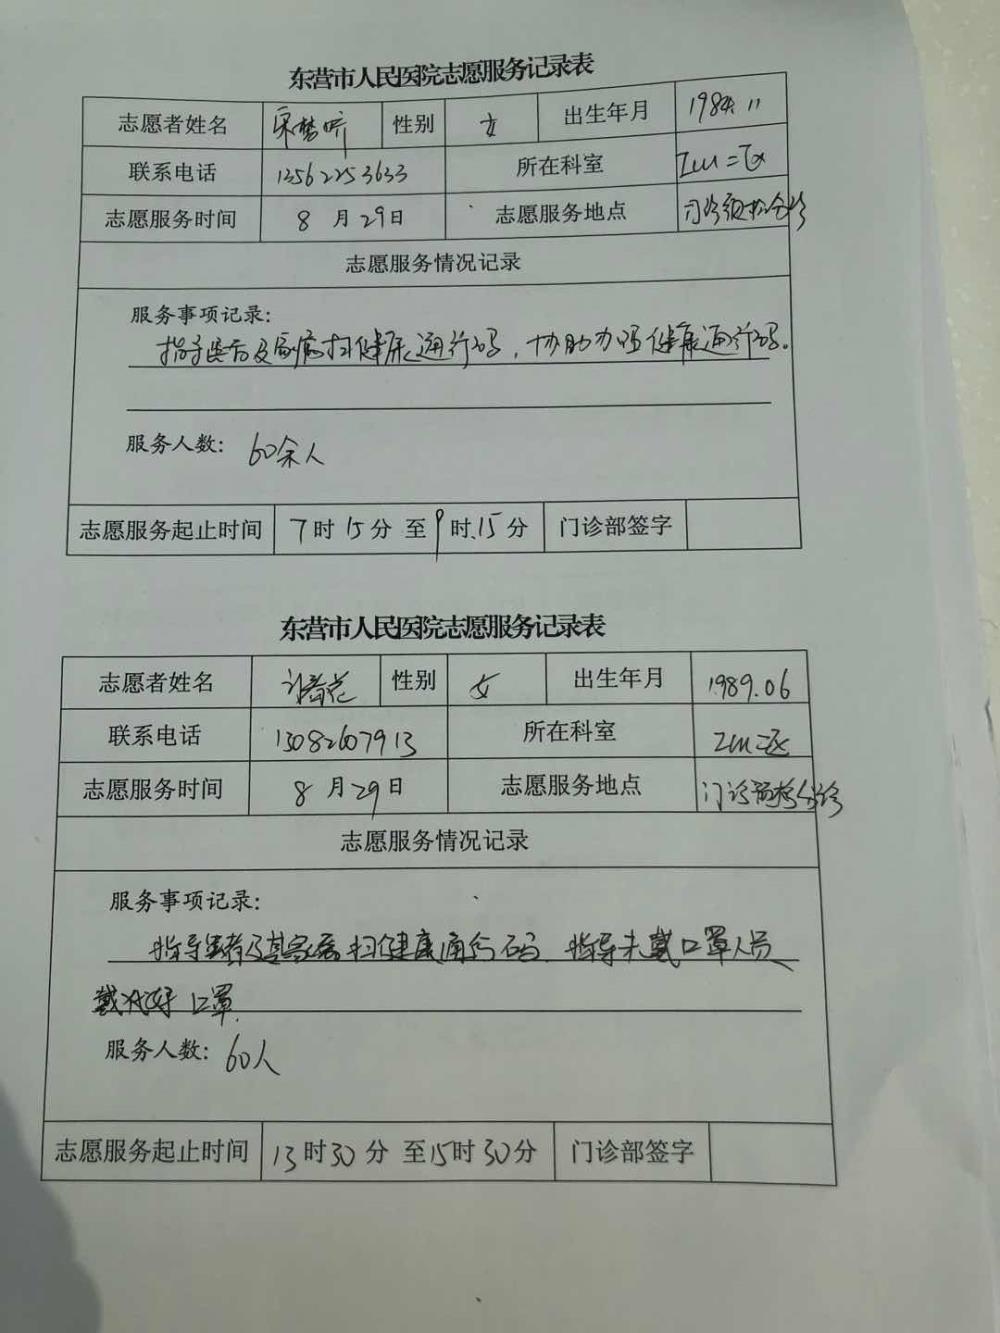 东营市人民医院志愿服务记录表
志愿者姓名 性别 女 出生年月 1984.11
联系电话 13562253633 所在科室
志愿服务时间 8月29日 志愿服务地点 门诊预检分诊
志愿服务情况记录
服务事项记录:
指导患者及家属扫健康通行码,协助办理健康通行码。
服务人数: 60余人
志愿服务起止时间 7时15分至9时15分 门诊部签字
东营市人民医院志愿服务记录表
志愿者姓名 性别 女 出生年月 1989.06
联系电话 13082607913 所在科室
志愿服务时间 8月29日 志愿服务地点 门诊预检分诊
志愿服务情况记录
服务事项记录:
指导患者及其家属扫健康通行码 指导未戴口罩人员
戴好口罩
服务人数: 60人
志愿服务起止时间 13时30分至15时30分 门诊部签字